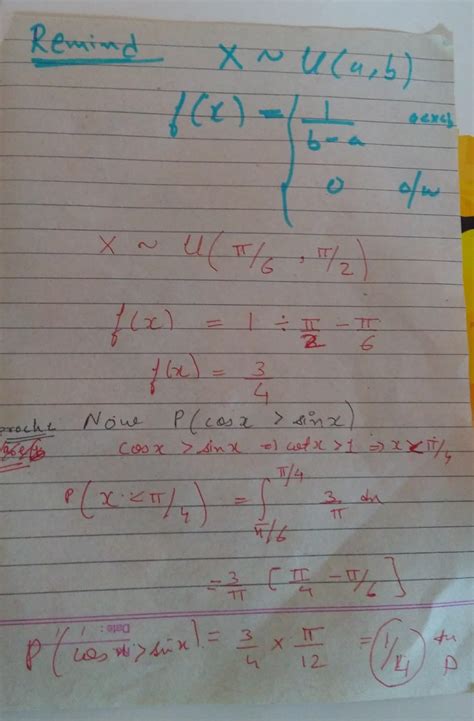 Remind X ~ U(a,b)
f(x) = { 1/(b-a) a<x<b
0 o/w
X ~ U(π/6, π/2)
f(x) = 1 ÷ π/2 - π/6
f(x) = 3/4
Now P(cosx > sinx)
cosx > sinx ⇒ cotx > 1 ⇒ x < π/4
P(x < π/4) = ∫_{π/6}^{π/4} 3/π dx
= 3/π [π/4 - π/6]
Date:
P(cosx > sinx) = 3/4 × π/12 = 1/4